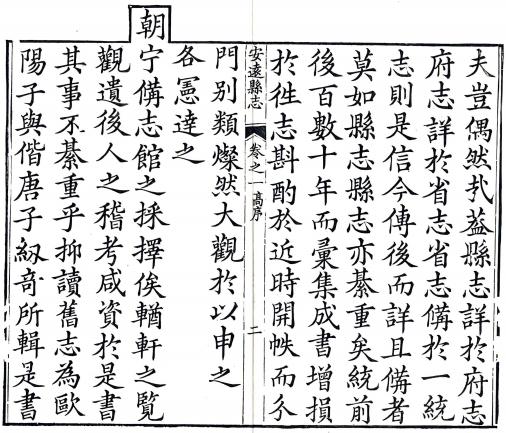 夫豈偶然㢤葢縣志詳於府志
府志詳於省志省志備於一統
志則是信今傳後而詳且備者
莫如縣志縣志亦綦重矣統前
後百數十年而彙集成書增損
於徃志斟酌於近時開帙而分
安遠縣志 卷之一 高序 二
門别類燦然大觀於以申之
各憲達之
朝宁備志館之採擇俟輶軒之覽
觀遺後人之稽考咸資於是書
其事不綦重乎抑讀舊志為歐
陽子與偕唐子紉竒所輯是書